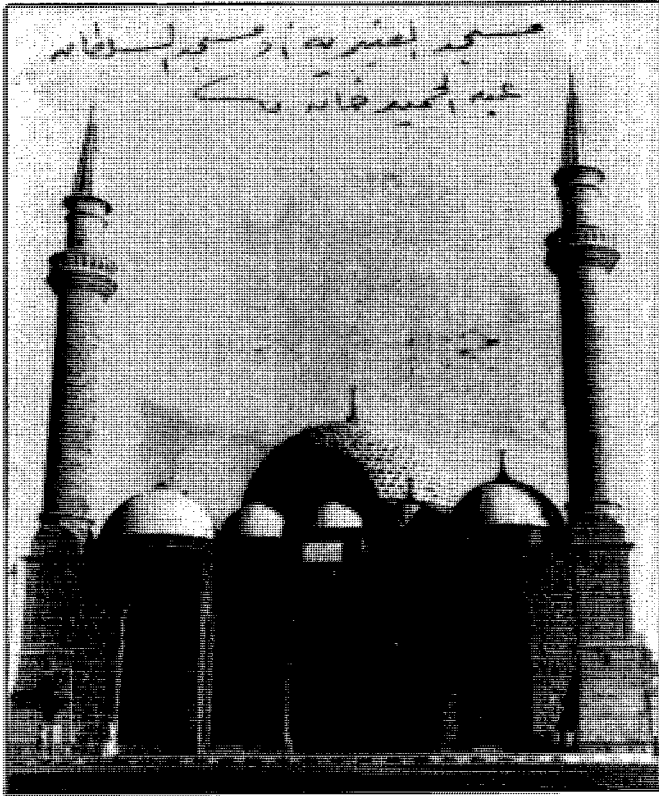 مسجد العنبرية أو مسجد السلطان
عبد الحميد خان